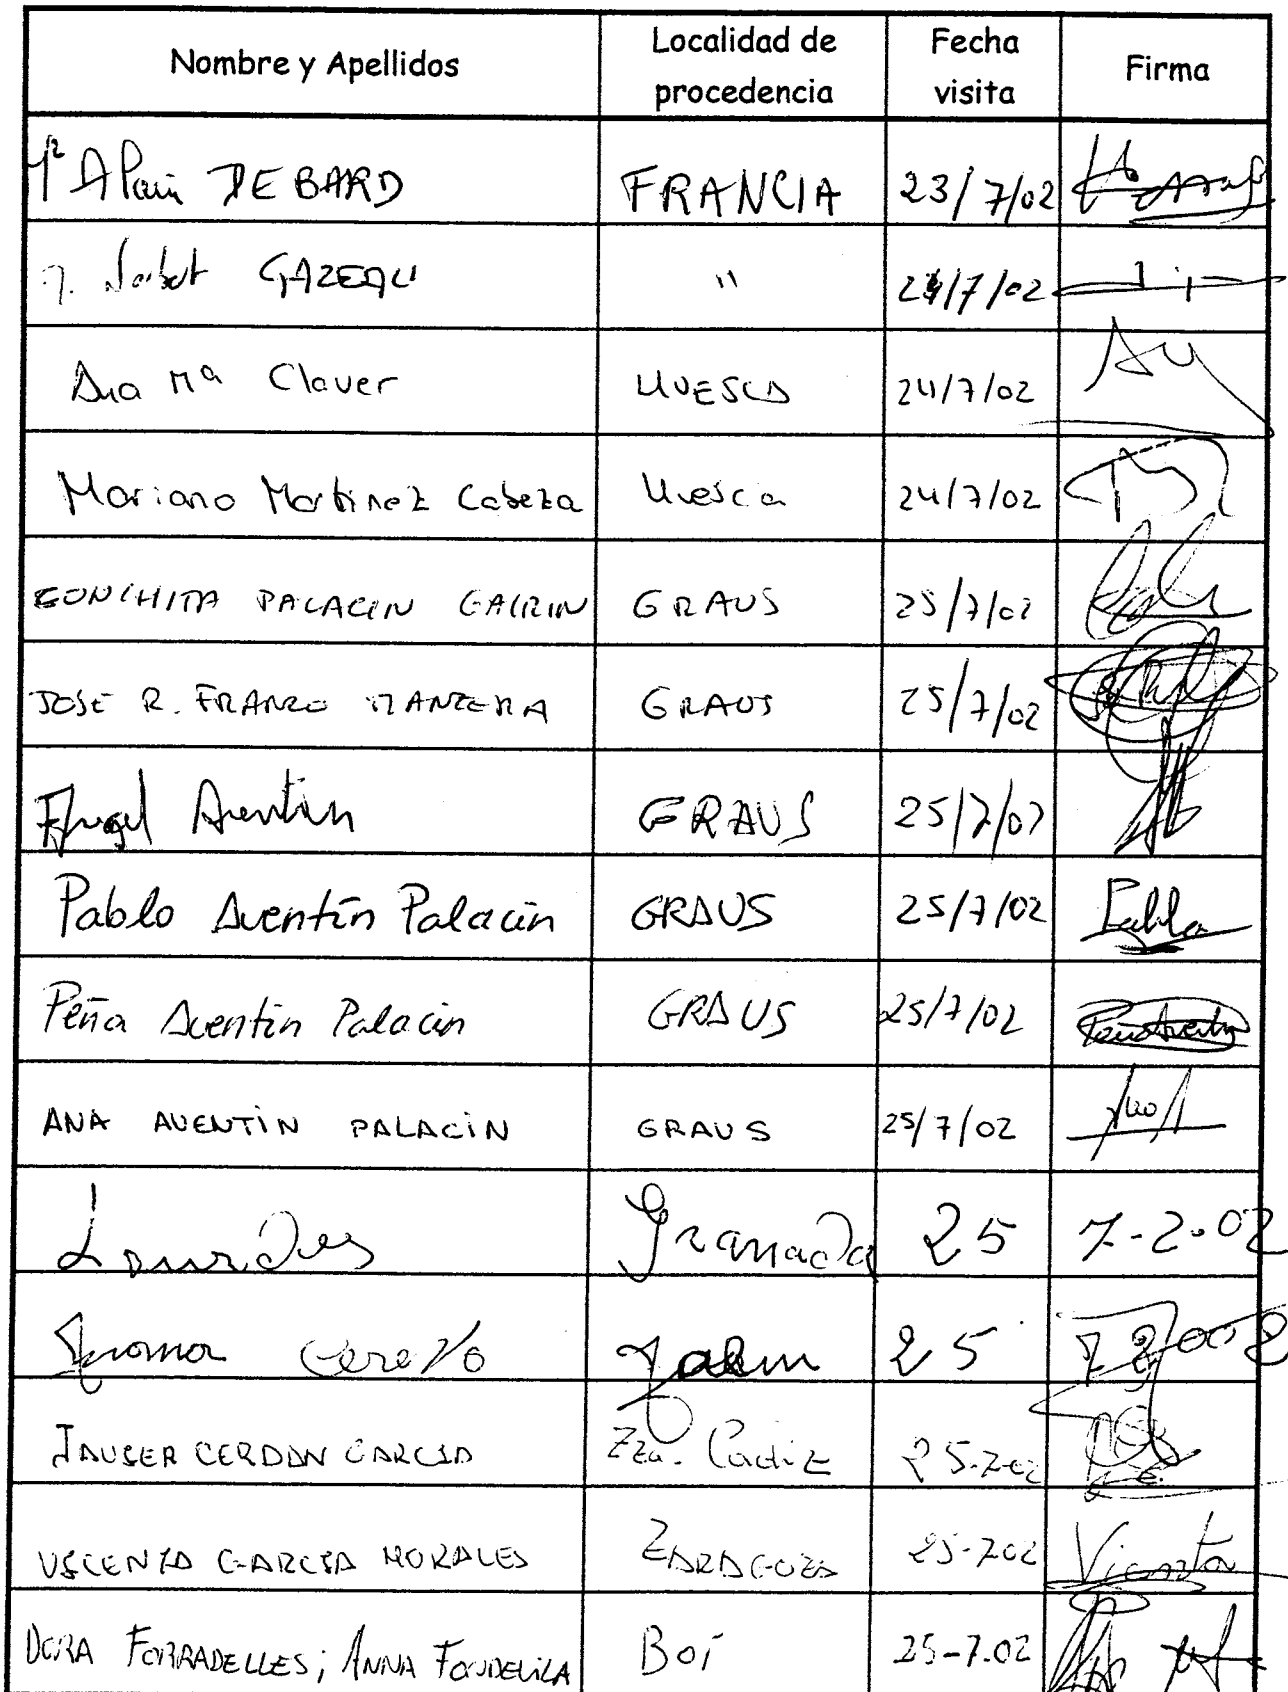 Nombre y Apellidos Localidad de procedencia Fecha visita Firma
Alain DEBARD FRANCIA 23/7/02
GAZEAU " 24/7/02
Ana Mª Claver HUESCA 24/7/02
Mariano Martinez Cabeza Huesca 24/7/02
CONCHITA PALACIN GAIRIN GRAUS 25/7/02
JOSE R. FRANCO MANZERA GRAUS 25/7/02
Angel Aventin GRAUS 25/7/02
Pablo Aventín Palacin GRAUS 25/7/02 Pablo
Peña Aventin Palacin GRAUS 25/7/02
ANA AVENTIN PALACIN GRAUS 25/7/02
Lourdes Granada 25 7-2-02
Cerezo Jaen 25 7 2002
JAVIER CERDAN GARCIA Zza. Cadiz 25-7-02
VICENTA GARCIA MORALES ZARAGOZA 25-7-02 Vicenta
DORA FORRADELLES; ANNA Boí 25-7-02